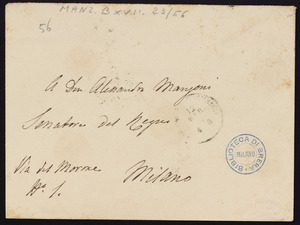 MANZ. B XVII. 23/56
56
A Don Alessandro Manzoni
Senatore del Regno
Via del Morone
Nº 1.
Milano
BIBLIOTECA DI BRERA
MILANO